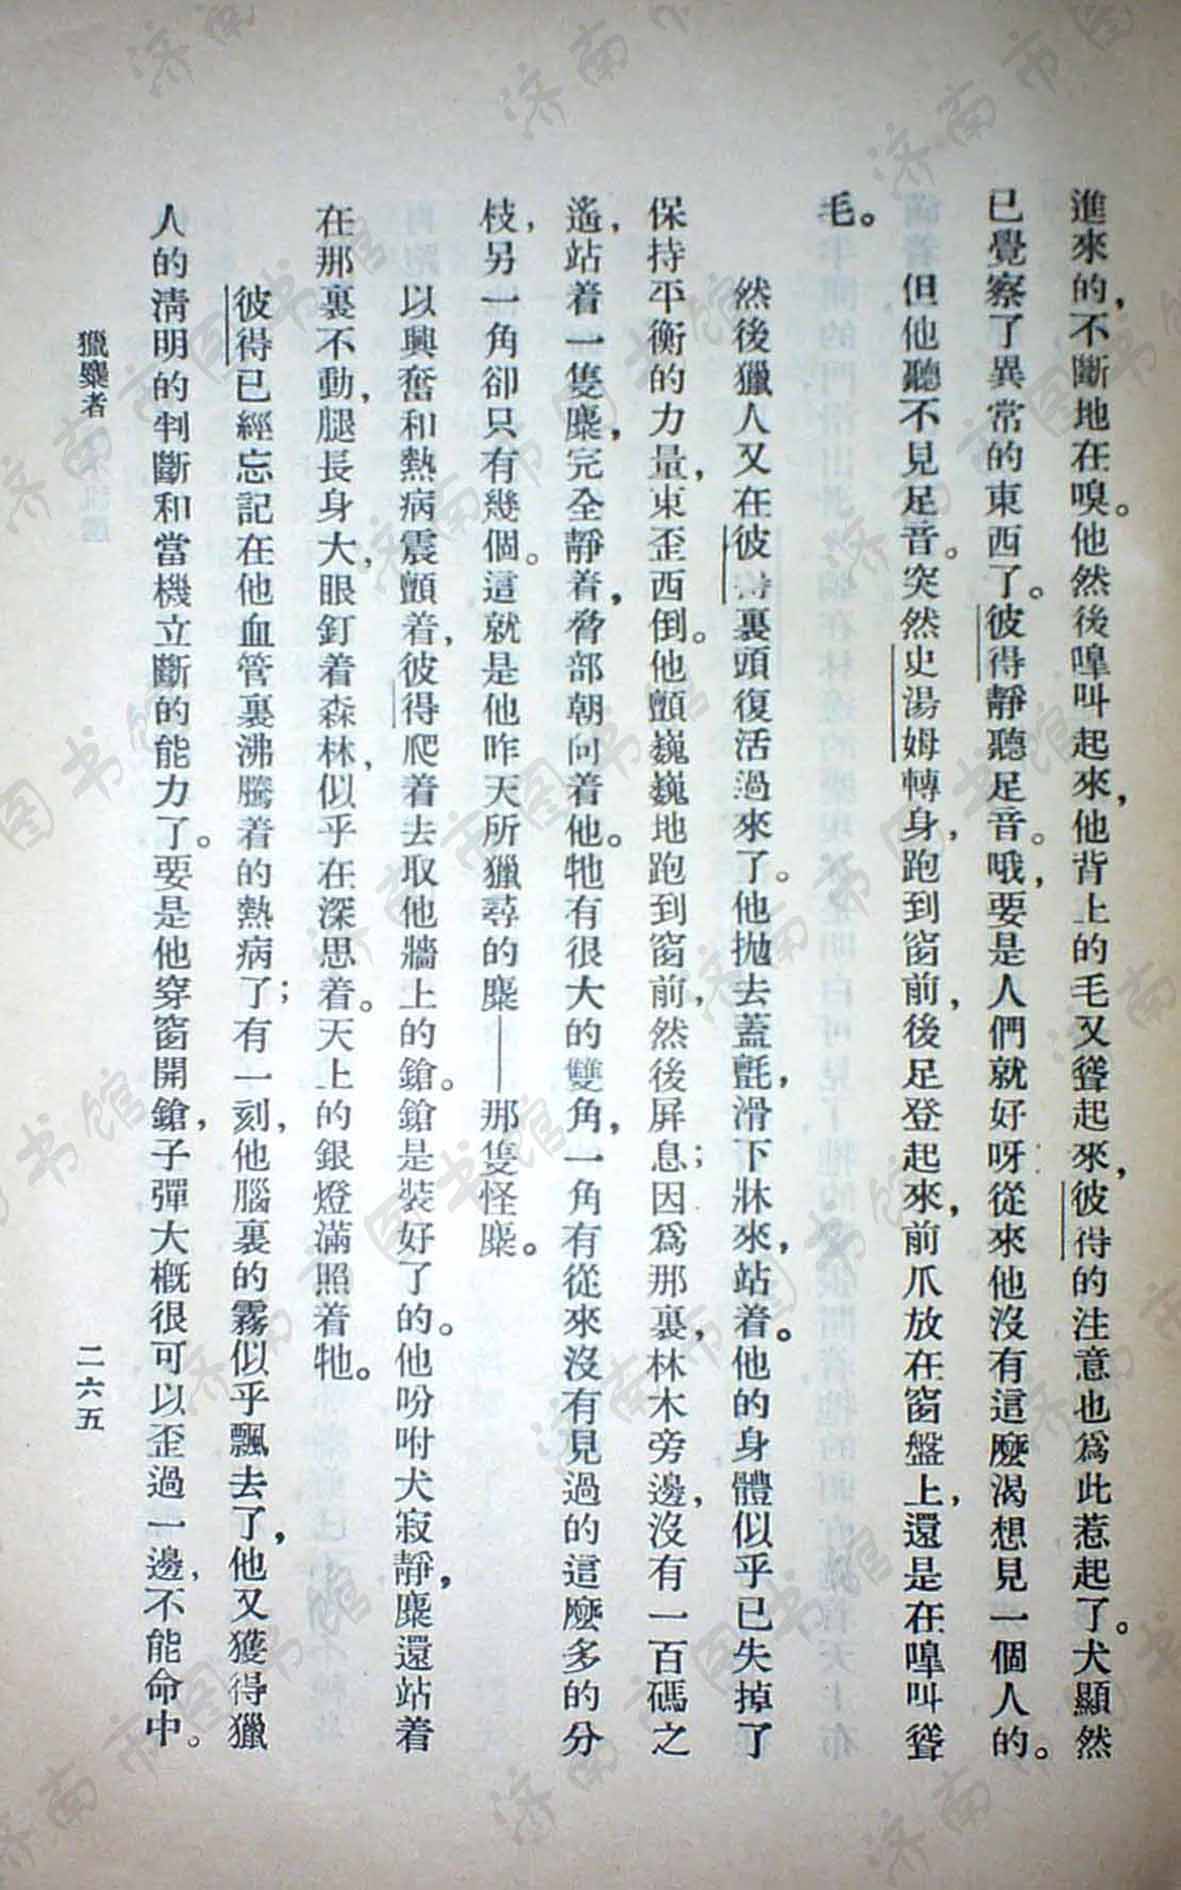 進來的，不斷地在嗅。他然後嘷叫起來，他背上的毛又聳起來，彼得的注意也爲此惹起了。犬顯然
已覺察了異常的東西了。彼得靜聽足音。哦，要是人們就好呀！從來他沒有這麼渴想見一個人的。
但他聽不見足音。突然史湯姆轉身，跑到窗前，後足登起來，前爪放在窗盤上，還是在嘷叫聳
毛。
然後獵人又在彼得裏頭復活過來了。他拋去蓋氈，滑下牀來，站着。他的身體似乎已失掉了
保持平衡的力量，東歪西倒。他顫巍巍地跑到窗前，然後屏息；因爲那裏，林木旁邊，沒有一百碼之
遙，站着一隻麋，完全靜着，脅部朝向着他。牠有很大的雙角，一角有從來沒有見過的這麼多的分
枝，另一角卻只有幾個。這就是他昨天所獵尋的麋——那隻怪麋。
以興奮和熱病震顫着，彼得爬着去取他牆上的鎗。鎗是裝好了的。他吩咐犬寂靜，麋還站着
在那裏不動，腿長身大，眼釘着森林，似乎在深思着。天上的銀燈滿照着牠。
彼得已經忘記在他血管裏沸騰着的熱病了；有一刻，他腦裏的霧似乎飄去了，他又獲得獵
人的淸明的判斷和當機立斷的能力了。要是他穿窗開鎗，子彈大概很可以歪過一邊，不能命中。
獵麋者
二六五
济南市图书馆